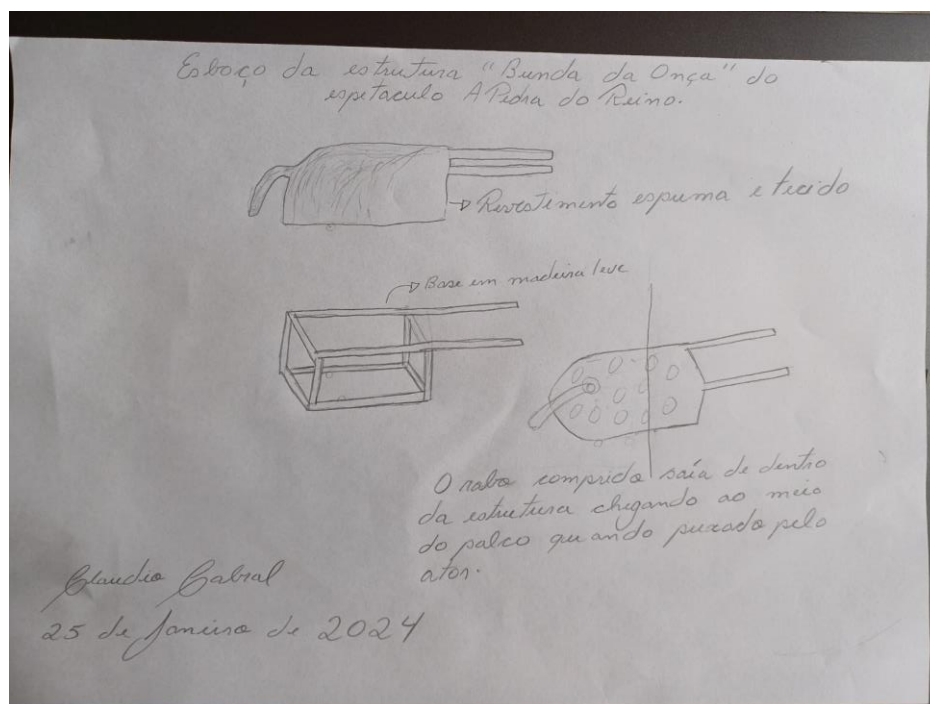 Esboço da estrutura "Bunda da Onça" do
espetaculo A Pedra do Reino.
Revestimento espuma e tecido
Base em madeira leve
O rabo comprido saía de dentro
da estrutura chegando ao meio
do palco quando puxado pelo
ator.
Claudio Cabral
25 de Janeiro de 2024